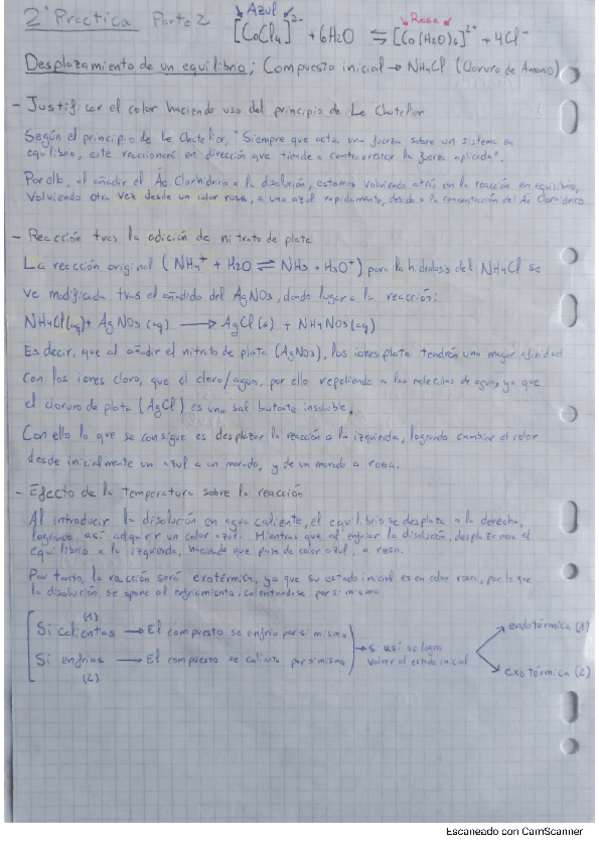 2ª Práctica Parte 2
Azul Rosa
[CoCl4]2- + 6H2O ⇆ [Co(H2O)6]2+ + 4Cl-
Desplazamiento de un equilibrio; Compuesto inicial → NH4Cl (Cloruro de Amonio)
- Justificar el color haciendo uso del principio de Le Chatelier
Según el principio de Le Chatelier, "Siempre que actúa una fuerza sobre un sistema en
equilibrio, este reaccionará en dirección que tienda a contrarrestar la fuerza aplicada".
Por ello, al añadir el Ác. Clorhídrico a la disolución, estamos volviendo atrás en la reacción en equilibrio,
volviendo otra vez desde un color rosa, a uno azul rapidamente, debido a la concentración del Ác Clorhídrico
- Reacción tras la adición de nitrato de plata
La reacción original (NH4+ + H2O ⇌ NH3 + H3O+) para la hidrólisis del NH4Cl se
ve modificada tras el añadido del AgNO3, dando lugar a la reacción:
NH4Cl(aq) + AgNO3(aq) → AgCl(s) + NH4NO3(aq)
Es decir, que al añadir el nitrato de plata (AgNO3), los iones plata tendrán una mayor afinidad
con los iones cloro, que el cloro/agua, por ello repeliendo a las moleculas de agua, ya que
el cloruro de plata (AgCl) es una sal bastante insoluble.
Con ello lo que se consigue es desplazar la reacción a la izquierda, logrando cambiar el color
desde inicialmente un azul a un morado, y de un morado a rosa.
- Efecto de la temperatura sobre la reacción
Al introducir la disolución en agua caliente, el equilibrio se desplaza a la derecha,
logrando así adquirir un color azul. Mientras que al enfriar la disolución, desplazamos el
equilibrio a la izquierda, haciendo que pase de color azul, a rosa.
Por tanto, la reacción será exotérmica, ya que su estado inicial es en color rosa, por lo que
la disolución se opone al enfriamiento, calentandose por si misma
(1)
Si calientas → El compuesto se enfria por si mismo
Si enfrias → El compuesto se calienta por si mismo
(2)
→ si así se logra
volver al estado inicial
endotérmica (1)
exotérmica (2)
Escaneado con CamScanner